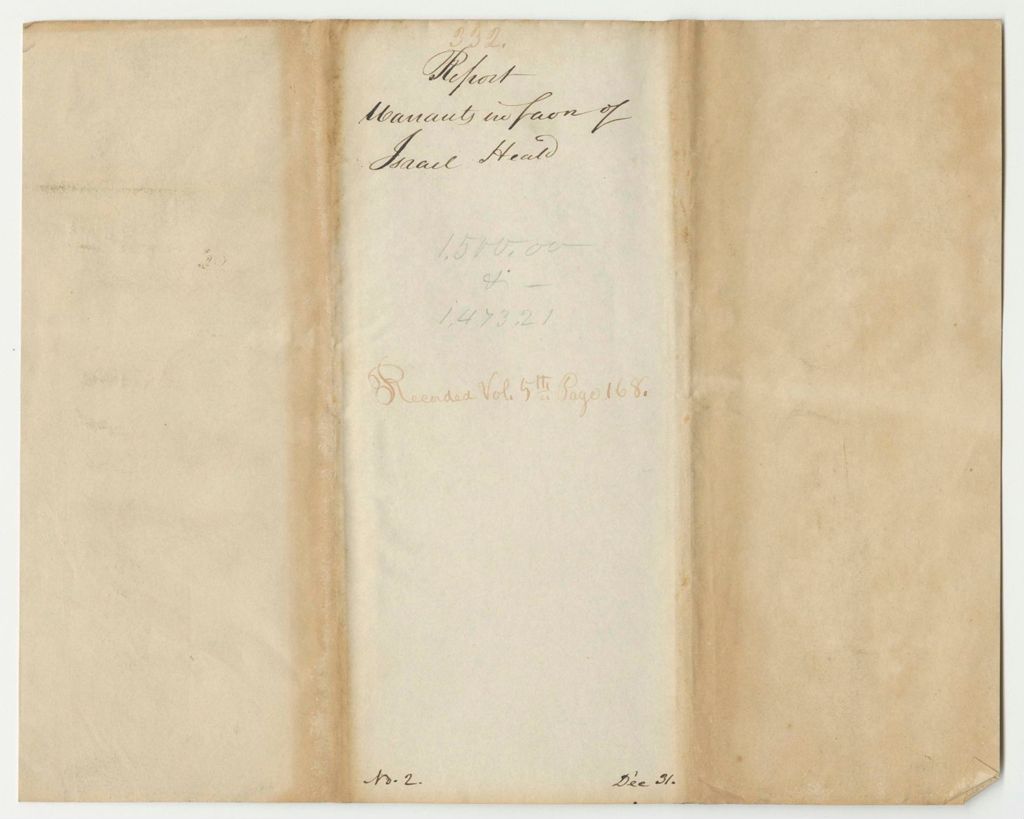 332.
Report
Warrants in favor of
Israel Heald
1,500.00
& –
1,473.21
Recorded Vol. 5th Page 168.
No. 2.
Dec 31.